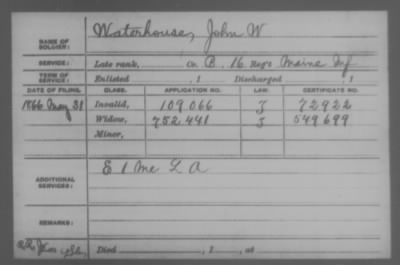 NAME OF SOLDIER: Waterhouse, John W
SERVICE: Late rank, Co B. 16 Reg't Maine Inf
TERM OF SERVICE: Enlisted , 1 Discharged , 1
DATE OF FILING. CLASS. APPLICATION NO. LAW. CERTIFICATE NO.
1866 May 31 Invalid, 109066 J 72922
Widow, 752.441 J 549699
Minor,
ADDITIONAL SERVICES: E 1 Me L A
REMARKS:
Died , 1 , at